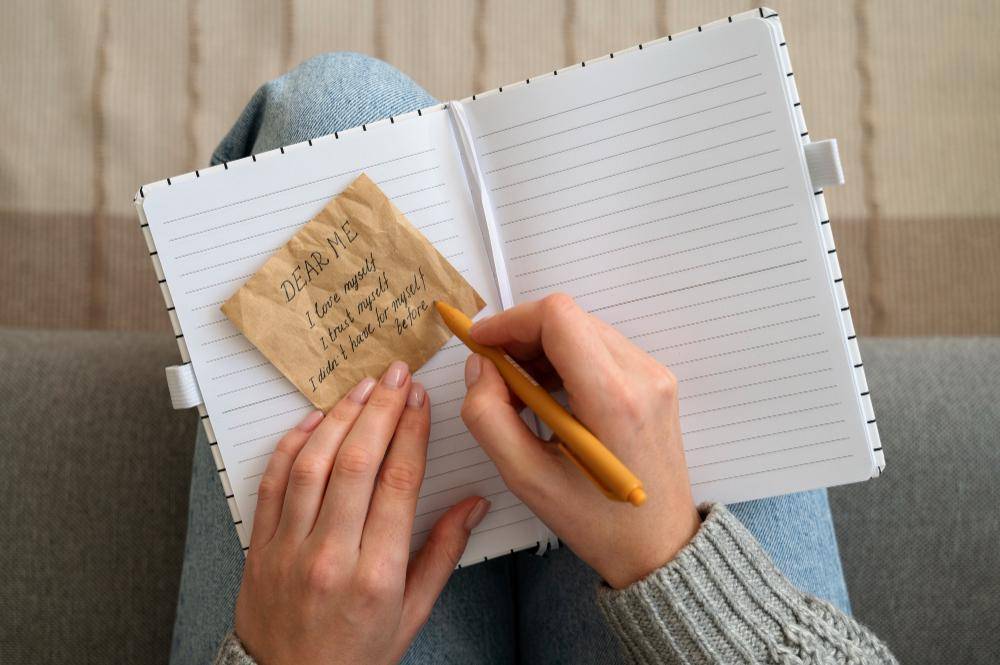 DEAR ME
I love myself
I trust myself
I didn't have for myself
before